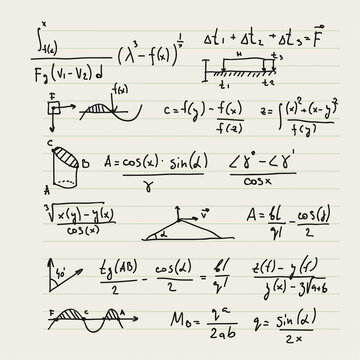 x ∫ f(x) / Fg(V1 - V2)d (λ³ - f(x))^(1/x) Δt1 + Δt2 + Δt3 = F⃗
H t3 t1 t2
F f(x) c = f(y) - f(x)/f(z) z = ∫ (x)² + (x-y)²/f(y)
C B A A = cos(x) · sin(α)/γ ∠γ° - ∠γ'/cosx
³√x(y) - y(x)/cos(x) α v⃗ A = bl/ql - cos(y)/2
40° tg(AB)/2 - cos(α)/2 = bl/ql z(f) - y(f)/y(x) - 3√a+b
F C A M₀ = qa/2ab q = sin(α)/2x